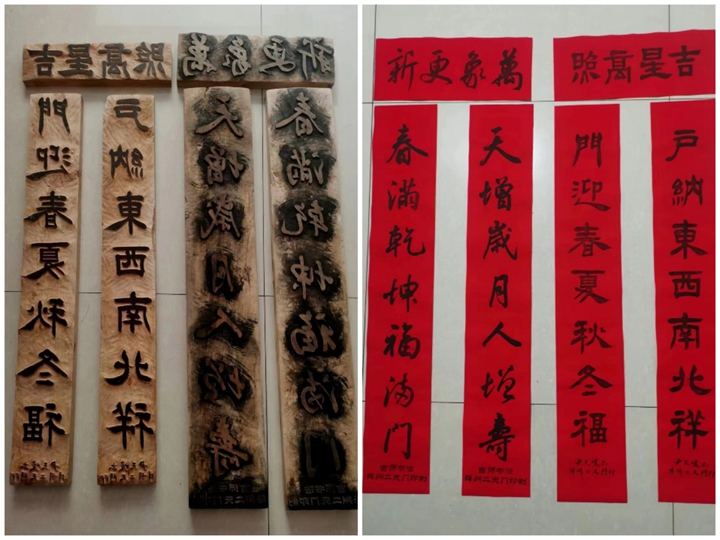 吉星高照
萬象更新
門迎春夏秋冬福
戶納東西南北祥
天增歲月人增壽
春滿乾坤福滿门
萬象更新
吉星高照
春滿乾坤福滿门
天增歲月人增壽
門迎春夏秋冬福
戶納東西南北祥